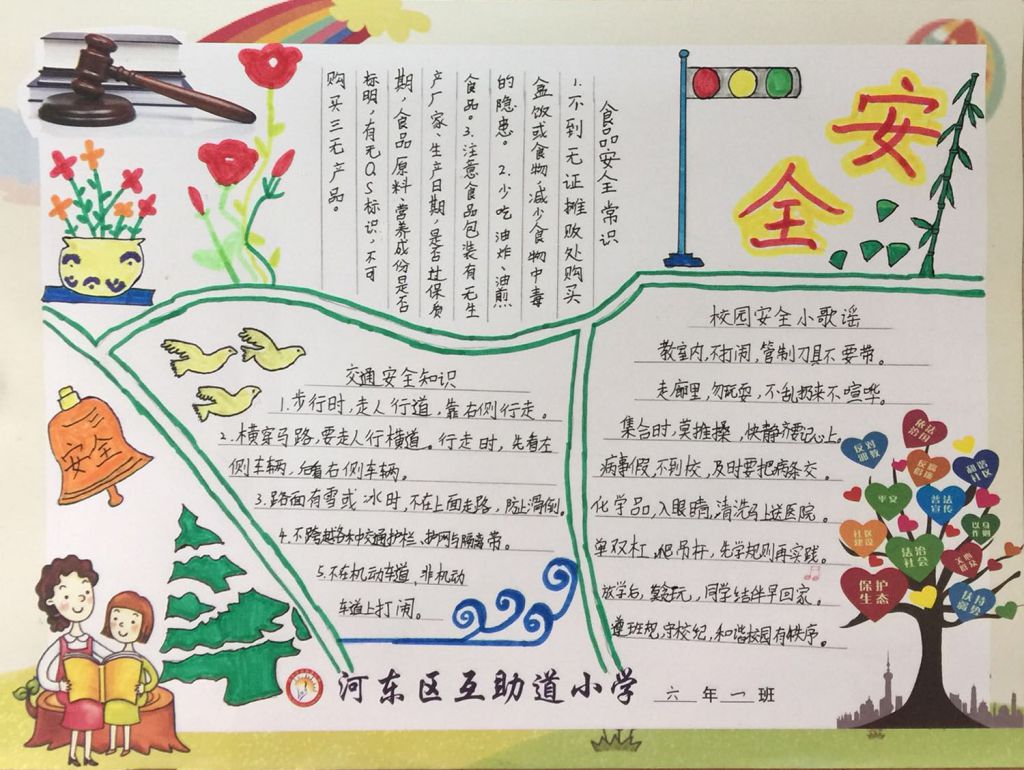 安
全
食品安全常识
1.不到无证摊贩处购买
盒饭或食物,减少食物中毒
的隐患。2.少吃油炸、油煎
食品。3.注意食品包装有无生
产厂家、生产日期,是否过保质
期,食品原料、营养成份是否
标明,有无QS标识,不可
购买三无产品。
校园安全小歌谣
教室内,不打闹,管制刀具不要带。
走廊里,勿玩耍,不乱扔来不喧哗。
集合时,莫推搡,快静齐要记心上。
病事假,不到校,及时要把病条交。
化学品,入眼睛,清洗马上送医院。
单双杠,爬吊杆,先学规则再实践。
放学后,莫贪玩,同学结伴早回家。
遵班规,守校纪,和谐校园有秩序。
交通安全知识
1.步行时,走人行道,靠右侧行走。
2.横穿马路,要走人行横道。行走时,先看左
侧车辆,后看右侧车辆。
3.路面有雪或冰时,不在上面走路,防止滑倒。
4.不跨越各种交通护栏、护网与隔离带。
5.不在机动车道、非机动
车道上打闹。
安全
依法
治国
反对
邪教
反腐
倡廉
和谐
社区
平安
普法
宣传
社区
建设
法治
社会
以身
作则
关心
群众
保护
生态
扶持
弱势
河东区互助道小学 六年一班